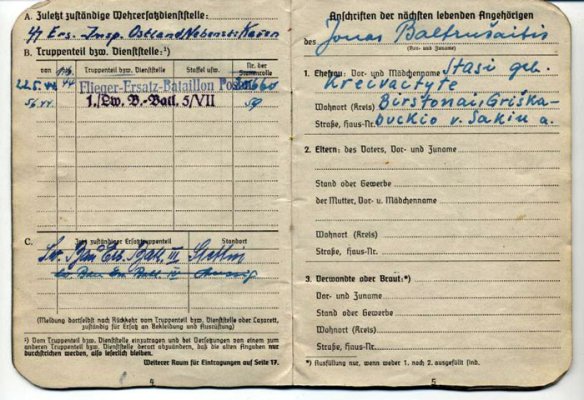 A. Zuletzt zuständige Wehrersatzdienststelle:
Ers.-Insp. Ostland Nebenst. Kauen
B. Truppenteil bzw. Dienststelle:¹)
von
Truppenteil bzw. Dienststelle
Staffel usw.
Nr. der Stammrolle
22.5. 44
Flieger-Ersatz-Bataillon
5.6.44.
1./Lw. B.-Batl. 5/VII
59
C.
Jetzt zuständiger Ersatztruppenteil
Standort
Lw. Bau Ers. Batl. III Stettin
Batl. IV
(Meldung dortselbst nach Rückkehr vom Truppenteil bzw. Dienststelle oder Lazarett,
zuständig für Ersatz an Bekleidung und Ausrüstung)
¹) Vom Truppenteil bzw. Dienststelle einzutragen und bei Versetzungen von einem zum
anderen Truppenteil bzw. Dienststelle derart abzuändern, daß die alten Angaben nur
durchstrichen werden, also leserlich bleiben.
Weiterer Raum für Eintragungen auf Seite 17.
4
Anschriften der nächsten lebenden Angehörigen
des Jonas Baltrušaitis
(Vor- und Zuname)
1. Ehefrau: Vor- und Mädchenname Stasi geb.
Kreivactyte
Wohnort (Kreis) Birstonai, Griška-
Straße, Haus-Nr. buckio v. Sakiu a.
2. Eltern: des Vaters, Vor- und Zuname
Stand oder Gewerbe
der Mutter, Vor- u. Mädchenname
Wohnort (Kreis)
Straße, Haus-Nr.
3. Verwandte oder Braut:*)
Vor- und Zuname
Stand oder Gewerbe
Wohnort (Kreis)
Straße, Haus-Nr.
*) Ausfüllung nur, wenn weder 1. noch 2. ausgefüllt sind.
5